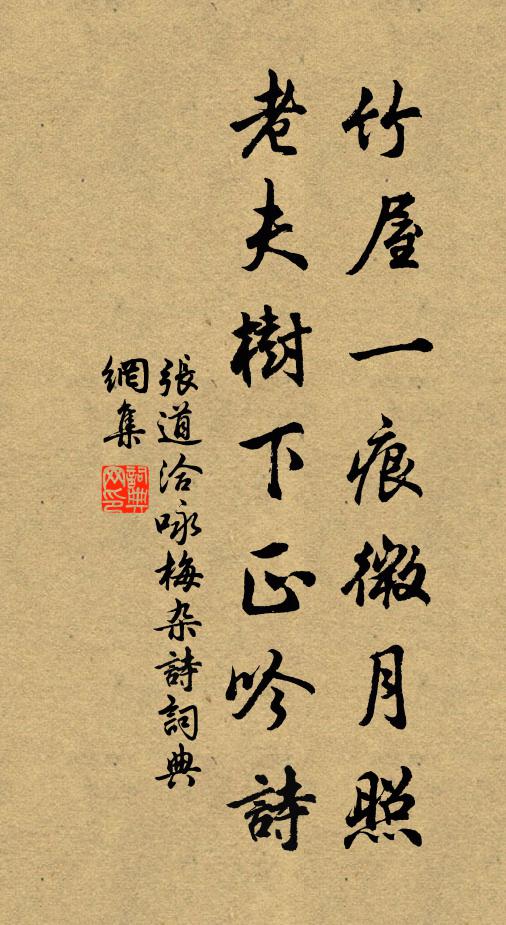 竹屋一痕微月照
老夫樹下正吟詩
張道洽咏梅杂詩詞典
網集
詞典网印